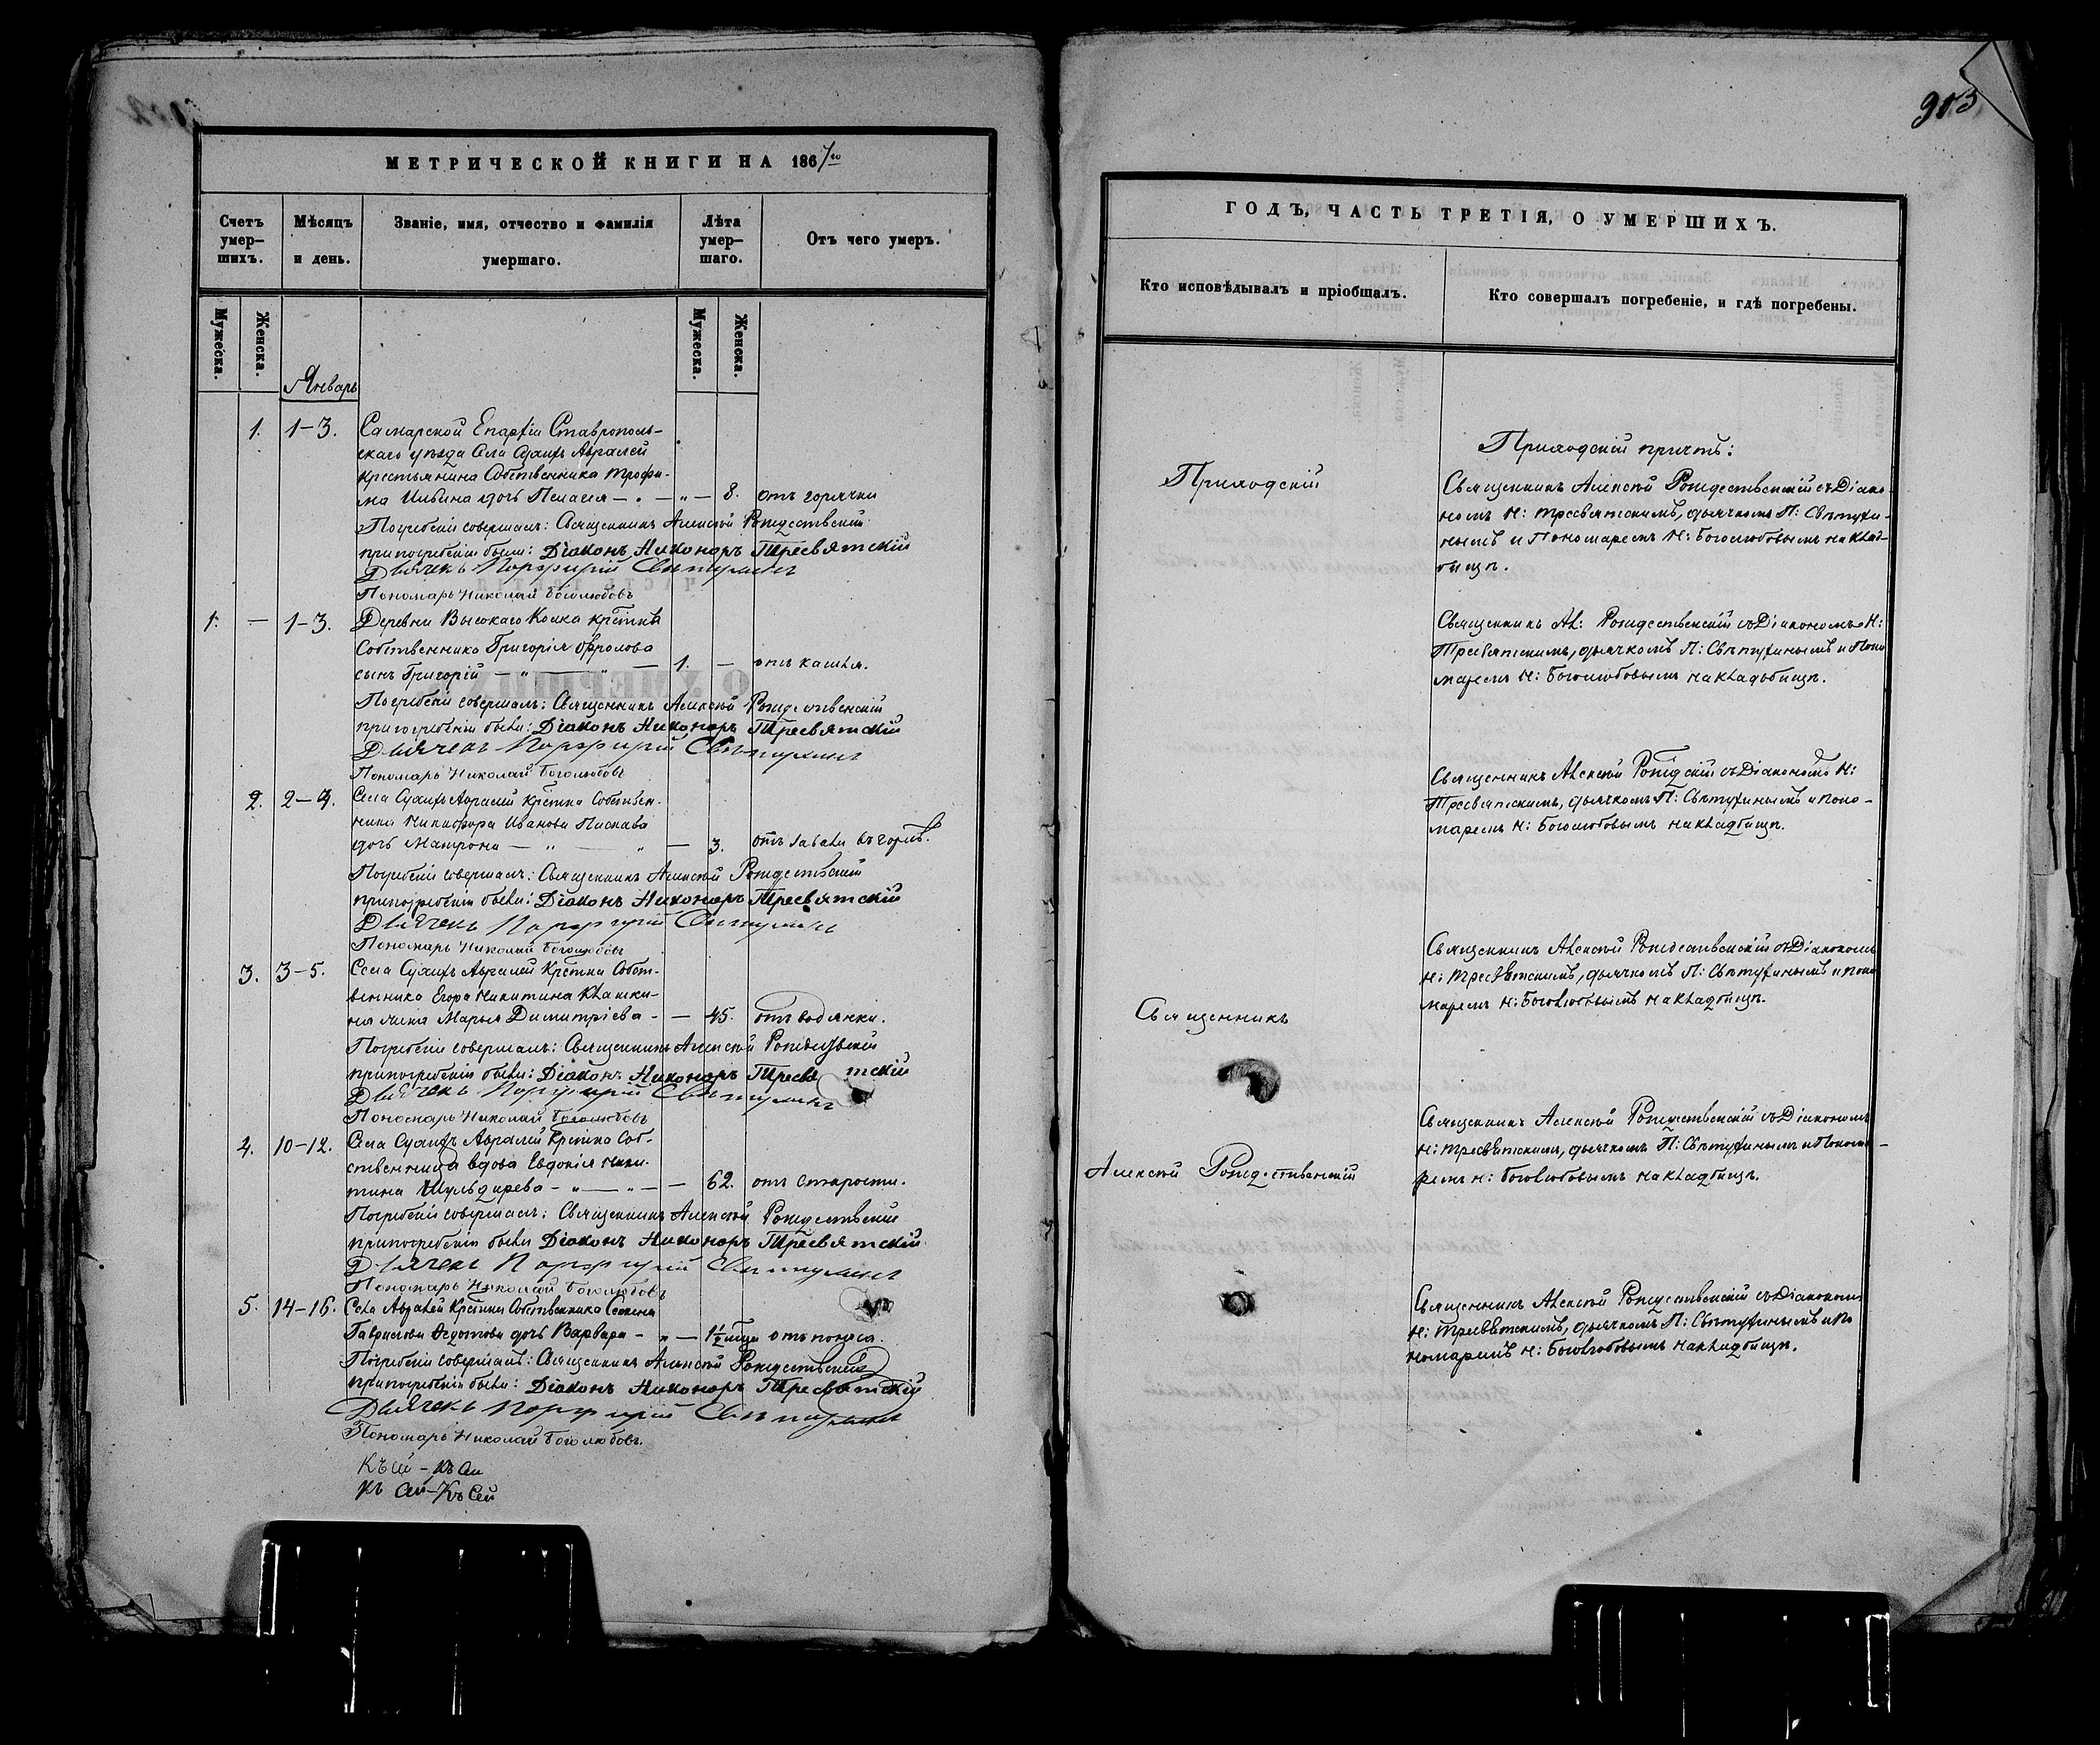 МЕТРИЧЕСКОЙ КНИГИ НА 1867го
Счетъ умер-шихъ.
Мѣсяцъ и день.
Званіе, имя, отчество и фамилія умершаго.
Лѣта умер-шаго.
Отъ чего умеръ.
Мужеска.
Женска.
Мужеска.
Женска.
Январь
1. 1-3. Самарской Епархіи Ставрополь-
скаго уѣзда Села Сухихъ Авралей
крестьянина Собственника Трофи-
ма Ильина дочь Пелагея — " — " — 8. отъ горячки
Погребеніе совершалъ: Священникъ Алексѣй Рождественскій
при погребеніи были: Діаконъ Никоноръ Тресвятскій
Дьячекъ Порфирій Свѣтухинъ
Пономарь Николай Боголюбовъ
1. — 1-3. Деревни Высокаго Колка крестнна
Собственника Григорія Фролова
сынъ Григорій — " — " — 1. — отъ кашля.
Погребеніе совершалъ: Священникъ Алексѣй Рождественскій
при погребеніи были: Діаконъ Никоноръ Тресвятскій
Дьячекъ Порфирій Свѣтухинъ
Пономарь Николай Боголюбовъ
2. 2-4. Села Сухихъ Авралей крестнна Собствен-
ника Никифора Иванова
дочь Матрона — " — " — 3. отъ
Погребеніе совершалъ: Священникъ Алексѣй Рождественскій
при погребеніи были: Діаконъ Никоноръ Тресвятскій
Дьячекъ Порфирій Свѣтухинъ
Пономарь Николай Боголюбовъ
3. 3-5. Села Сухихъ Авралей крестнна Собст-
венника Егора Никитина Квашни-
на жена Марья Димитріева — — 45. отъ водянки.
Погребеніе совершалъ: Священникъ Алексѣй Рождественскій
при погребеніи были: Діаконъ Никоноръ Тресвятскій
Дьячекъ Порфирій Свѣтухинъ
Пономарь Николай Боголюбовъ
4. 10-12. Села Сухихъ Авралей крестнка Соб-
ственница вдова Евдокія Ники-
тина Шульдирева — " — " — — 62. отъ старости.
Погребеніе совершалъ: Священникъ Алексѣй Рождественскій
при погребеніи были Діаконъ Никоноръ Тресвятскій
Дьячекъ Порфирій Свѣтухинъ
Пономарь Николай Боголюбовъ
5. 14-16. Села Авралей крестнна Собственника Семена
Гаврилова Федотова дочь Варвара — " — 1½ мца отъ поноса.
Погребеніе совершалъ: Священникъ Алексѣй Рождественскій
при погребеніи были: Діаконъ Никоноръ Тресвятскій
Дьячекъ Порфирій Свѣтухинъ
Пономарь Николай Боголюбовъ.
903
ГОДЪ, ЧАСТЬ ТРЕТІЯ, О УМЕРШИХЪ.
Кто исповѣдывалъ и пріобщалъ.
Кто совершалъ погребеніе, и гдѣ погребены.
Приходскій
Священникъ
Алексѣй Рождественскій
Приходскій причтъ:
Священникъ Алексѣй Рождественскій съ Діако-
номъ Н: Тресвятскимъ, дьячкомъ П: Свѣтухи-
нымъ и Пономаремъ Н: Боголюбовымъ на клад-
бищѣ.
Священникъ Ал: Рождественскій съ Діакономъ Н:
Тресвятскимъ, дьячкомъ П: Свѣтухинымъ и Поно
маремъ Н: Боголюбовымъ на кладбищѣ.
Священникъ Алексѣй Рождскій съ Діакономъ Н:
Тресвятскимъ, дьячкомъ П: Свѣтухинымъ и Поно-
маремъ Н: Боголюбовымъ на кладбищѣ.
Священникъ Алексѣй Рождественскій съ Діакономъ
Н: Тресвятскимъ, дьячкомъ П: Свѣтухинымъ и Поно
маремъ Н: Боголюбовымъ на кладбищѣ.
Священникъ Алексѣй Рождественскій съ Діакономъ
Н: Тресвятскимъ, дьячкомъ П: Свѣтухинымъ и Понома-
ремъ Н: Боголюбовымъ на кладбищѣ.
Священникъ Алексѣй Рождественскій съ Діакономъ
Н: Тресвятскимъ, дьячкомъ П: Свѣтухинымъ и По
номаремъ Н: Боголюбовымъ на кладбищѣ.